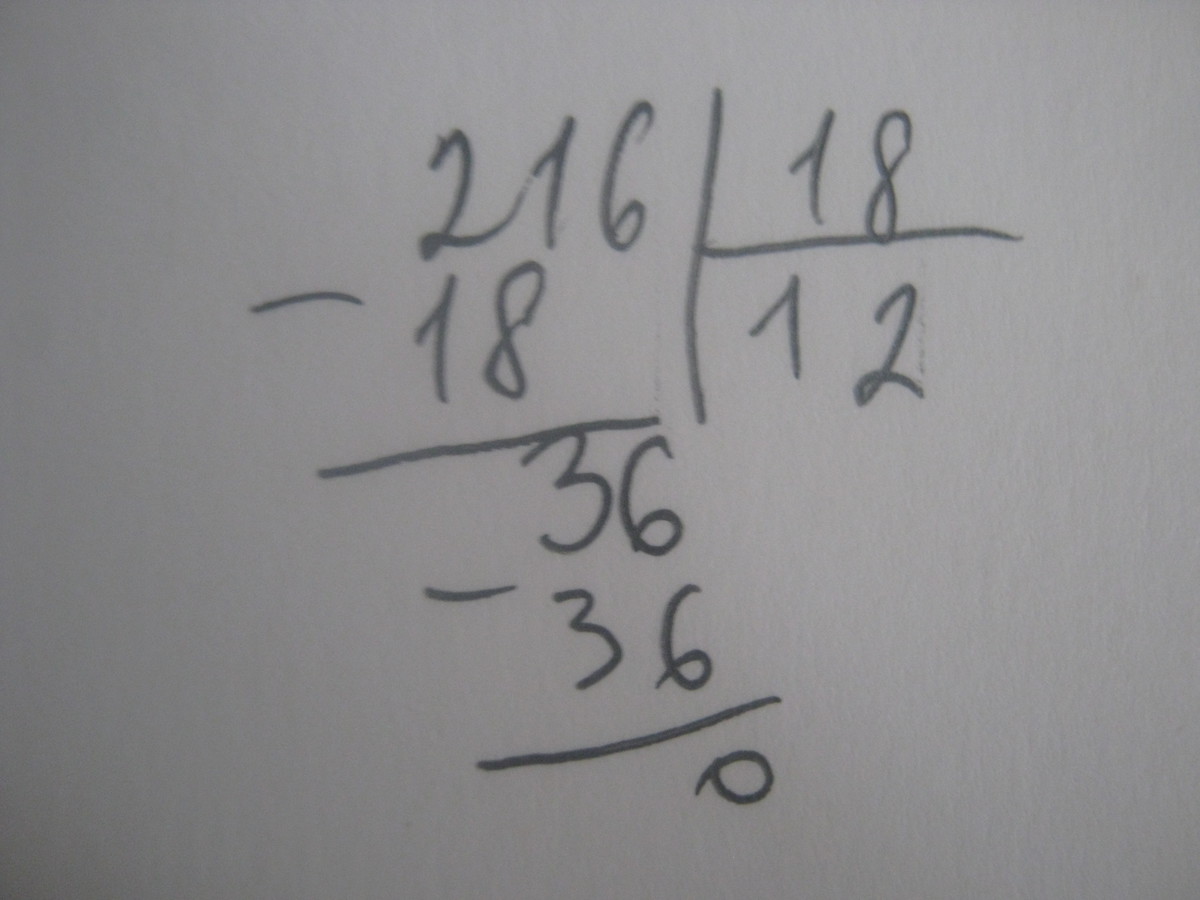 216 | 18
- 18 | 12
36
- 36
0